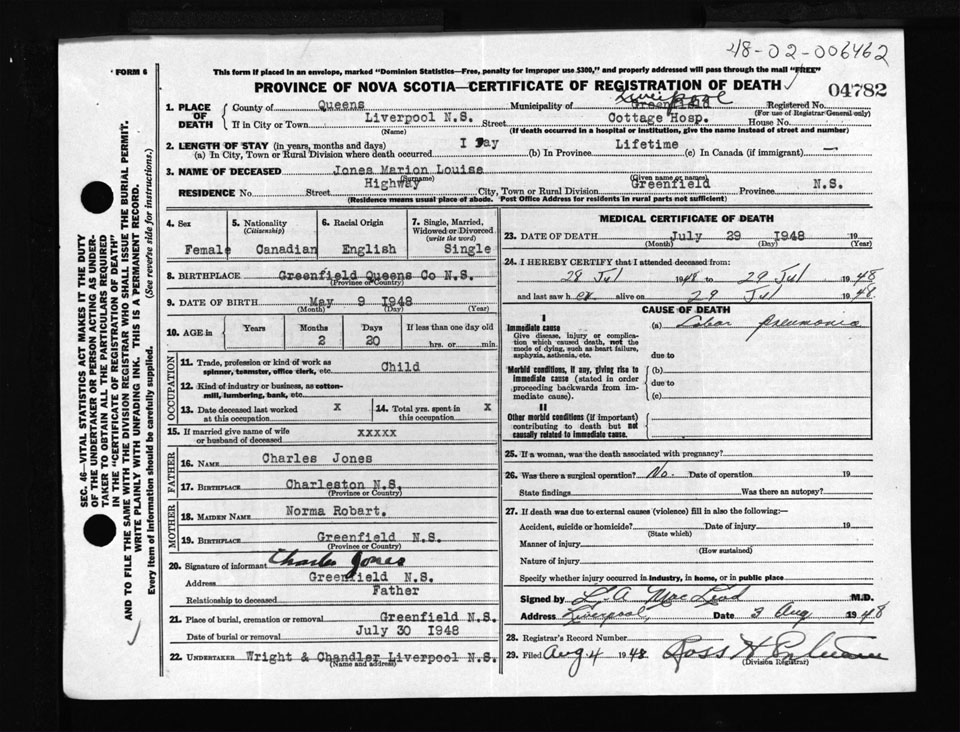 48-02-006462
FORM 6
This form if placed in an envelope, marked "Dominion Statistics—Free, penalty for improper use $300," and properly addressed will pass through the mail "FREE"
PROVINCE OF NOVA SCOTIA—CERTIFICATE OF REGISTRATION OF DEATH
04782
1. PLACE OF DEATH
County of Queens Municipality of Greenfield Liverpool Registered No.
(For use of Registrar General only)
If in City or Town Liverpool N.S. Street Cottage Hosp. House No.
(Name) (If death occurred in a hospital or institution, give the name instead of street and number)
2. LENGTH OF STAY (in years, months and days)
(a) In City, Town or Rural Division where death occurred I Day (b) In Province Lifetime (c) In Canada (if immigrant) —
3. NAME OF DECEASED Jones Marion Louise
(Surname) (Given name or names)
RESIDENCE No Street Highway City, Town or Rural Division Greenfield Province N.S.
(Residence means usual place of abode. Post Office Address for residents in rural parts not sufficient)
4. Sex Female
5. Nationality (Citizenship) Canadian
6. Racial Origin English
7. Single, Married, Widowed or Divorced (write the word) Single
8. BIRTHPLACE Greenfield Queens Co N.S.
(Province or Country)
9. DATE OF BIRTH May 9 1948
(Month) (Day) (Year)
10. AGE in
Years Months Days If less than one day old
2 20 hrs. or min.
OCCUPATION
11. Trade, profession or kind of work as spinner, teamster, office clerk, etc. Child
12. Kind of industry or business, as cotton-mill, lumbering, bank, etc.
13. Date deceased last worked at this occupation X
14. Total yrs. spent in this occupation X
15. If married give name of wife or husband of deceased xxxxx
FATHER
16. NAME Charles Jones
17. BIRTHPLACE Charleston N.S.
(Province or Country)
MOTHER
18. MAIDEN NAME Norma Robart.
19. BIRTHPLACE Greenfield N.S.
(Province or Country)
20. Signature of informant Charles Jones
Address Greenfield N.S.
Relationship to deceased Father
21. Place of burial, cremation or removal Greenfield N.S.
Date of burial or removal July 30 1948
22. UNDERTAKER Wright & Chandler Liverpool N.S.
(Name and address)
MEDICAL CERTIFICATE OF DEATH
23. DATE OF DEATH July 29 1948 19
(Month) (Day) (Year)
24. I HEREBY CERTIFY that I attended deceased from:
28 Jul 1948 to 29 Jul 1948
and last saw her alive on 29 Jul 1948.
CAUSE OF DEATH
I
Immediate cause
Give disease, injury or complication which caused death, not the mode of dying, such as heart failure, asphyxia, asthenia, etc.
(a) Lobar pneumonia
due to
Morbid conditions, if any, giving rise to immediate cause (stated in order proceeding backwards from immediate cause).
(b)
due to
(c)
II
Other morbid conditions (if important) contributing to death but not causally related to immediate cause.
25. If a woman, was the death associated with pregnancy?
26. Was there a surgical operation? No. Date of operation 19
State findings Was there an autopsy?
27. If death was due to external causes (violence) fill in also the following:—
Accident, suicide or homicide? Date of injury 19
(State which)
Manner of injury
(How sustained)
Nature of injury
Specify whether injury occurred in industry, in home, or in public place
Signed by L.A MacLeod M.D.
Address Liverpool, Date 3 Aug 1948
28. Registrar's Record Number
29. Filed Aug 4 1948 Ross H
(Division Registrar)
SEC. 46—VITAL STATISTICS ACT MAKES IT THE DUTY
OF THE UNDERTAKER OR PERSON ACTING AS UNDER-
TAKER TO OBTAIN ALL THE PARTICULARS REQUIRED
IN THE "CERTIFICATE OF REGISTRATION OF DEATH"
AND TO FILE THE SAME WITH THE DIVISION REGISTRAR WHO SHALL ISSUE THE BURIAL PERMIT.
WRITE PLAINLY WITH UNFADING INK. THIS IS A PERMANENT RECORD.
Every item of Information should be carefully supplied. (See reverse side for instructions.)